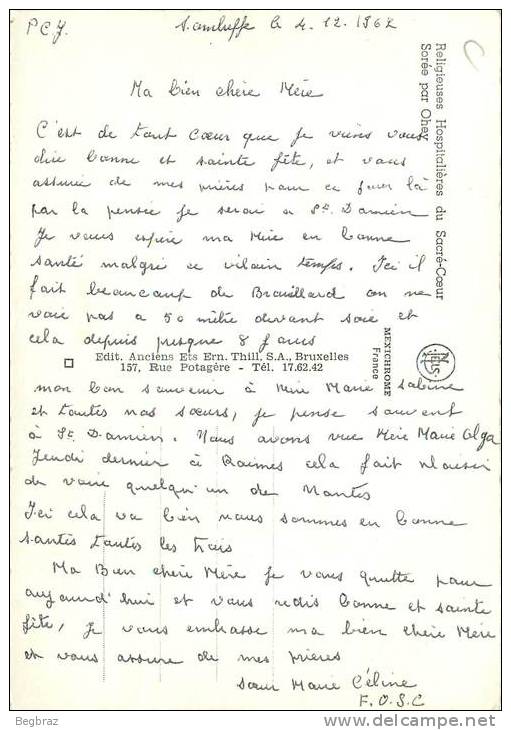 P C J. Sambreffe le 4.12.1962
Ma bien chère Mère
C'est de tout cœur que je viens vous
dire bonne et sainte fête, et vous
assurer de mes prières pour ce jour là
par la pensée je serai a St. Damien
Je vous espère ma Mère en bonne
santé malgré ce vilain temps. Ici il
fait beaucoup de Brouillard on ne
voie pas a 50 mètre devant soie et
cela depuis presque 8 jours
Edit. Anciens Ets Ern. Thill, S.A., Bruxelles
157, Rue Potagère - Tél. 17.62.42
mon bon souvenir à Mère Marie Sabine
et toutes nos sœurs, je pense souvent
à St. Damien. Nous avons vue Mère Marie Olga
Jeudi dernier à Raimes cela fait plaisir
de voire quelqu'un de Nantes
Ici cela va bien nous sommes en bonne
santés toutes les trois
Ma Bien chère Mère je vous quitte pour
aujourd'hui et vous redis bonne et sainte
fête, je vous embrasse ma bien chère Mère
et vous assure de mes prières
sœur Marie Céline
F.O.S.C
Religieuses Hospitalières du Sacré-Cœur
Sorée par Ohey
MEXICHROME
France
NELS
Begbraz
www.delcampe.net